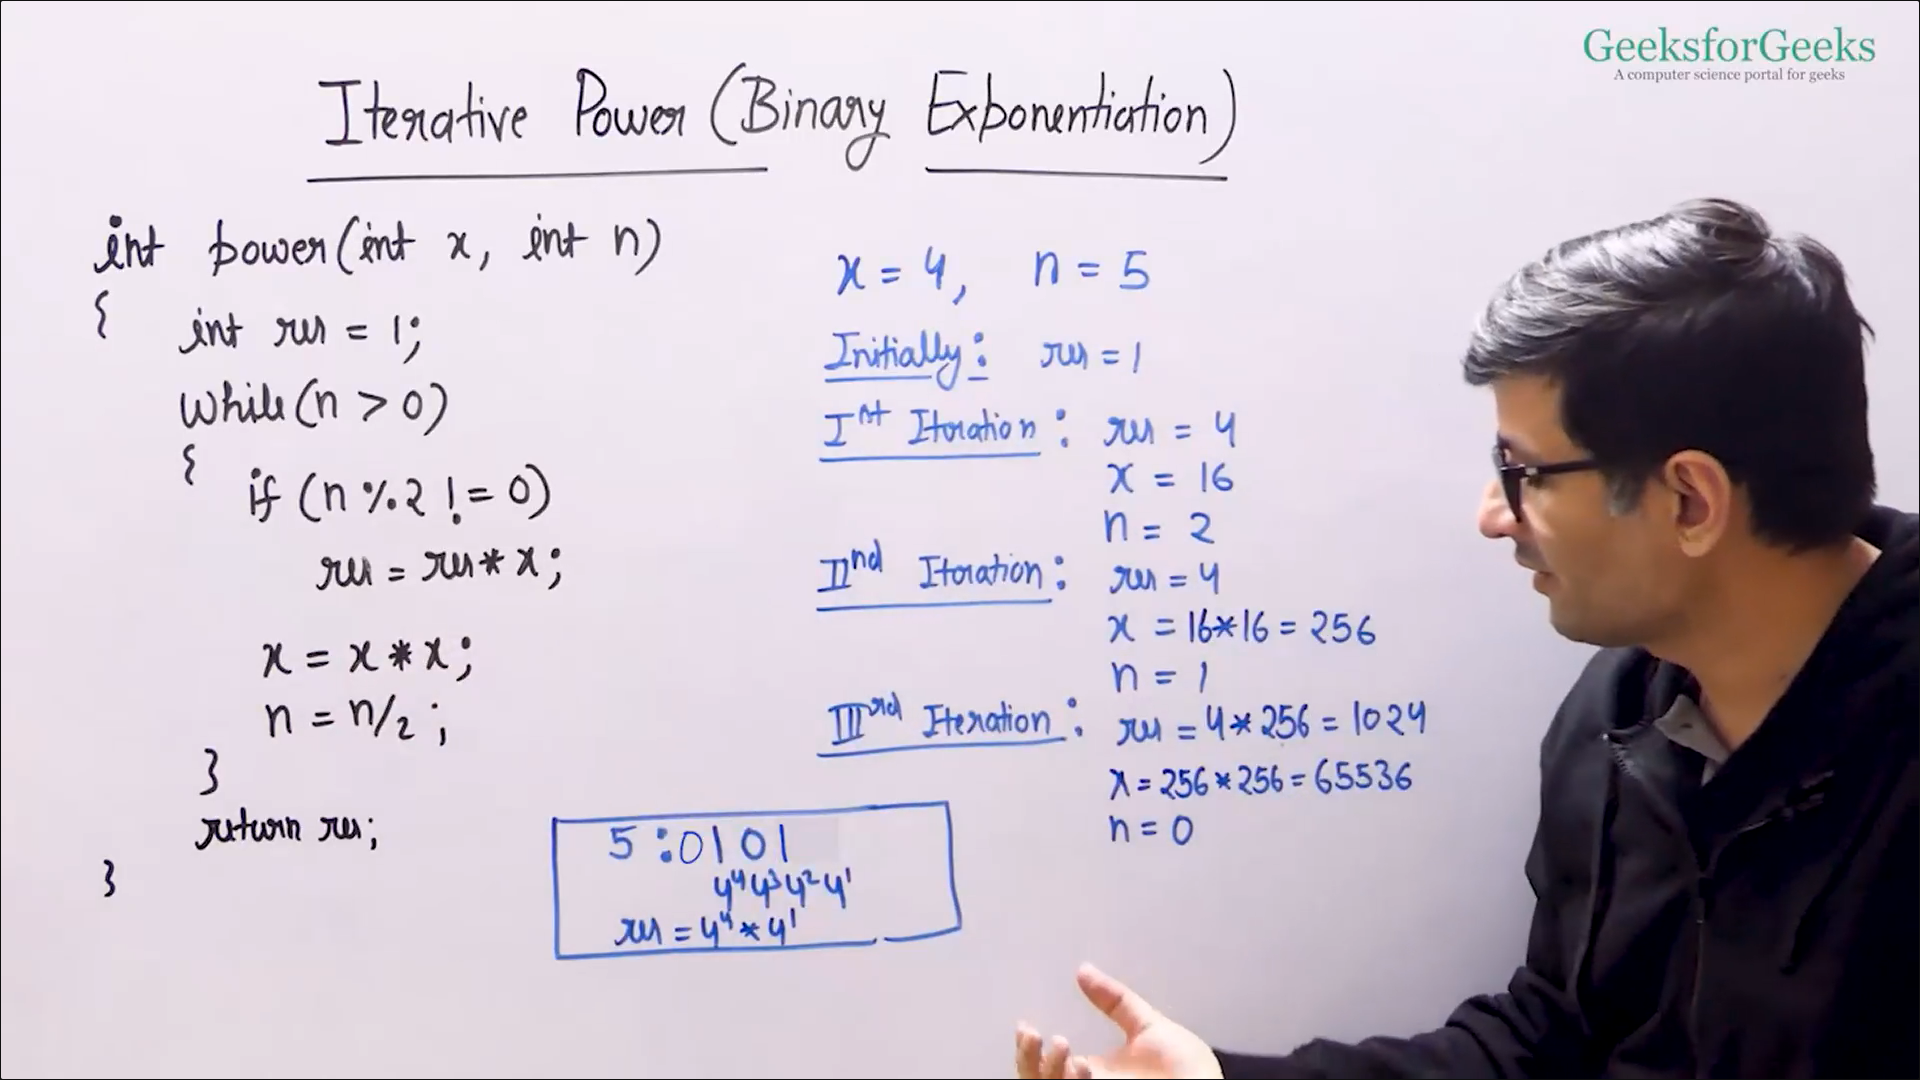 GeeksforGeeks
A computer science portal for geeks
Iterative Power (Binary Exponentiation)
int power(int x, int n)
{
int res = 1;
while(n > 0)
{
if (n % 2 != 0)
res = res * x;
x = x * x;
n = n/2 ;
}
return res;
}
x = 4, n = 5
Initially: res = 1
Ist Iteration : res = 4
x = 16
n = 2
IInd Iteration : res = 4
x = 16*16 = 256
n = 1
IIIrd Iteration : res = 4*256 = 1024
x = 256*256 = 65536
n = 0
5 : 0101
4⁴4³4²4¹
res = 4⁴ * 4¹